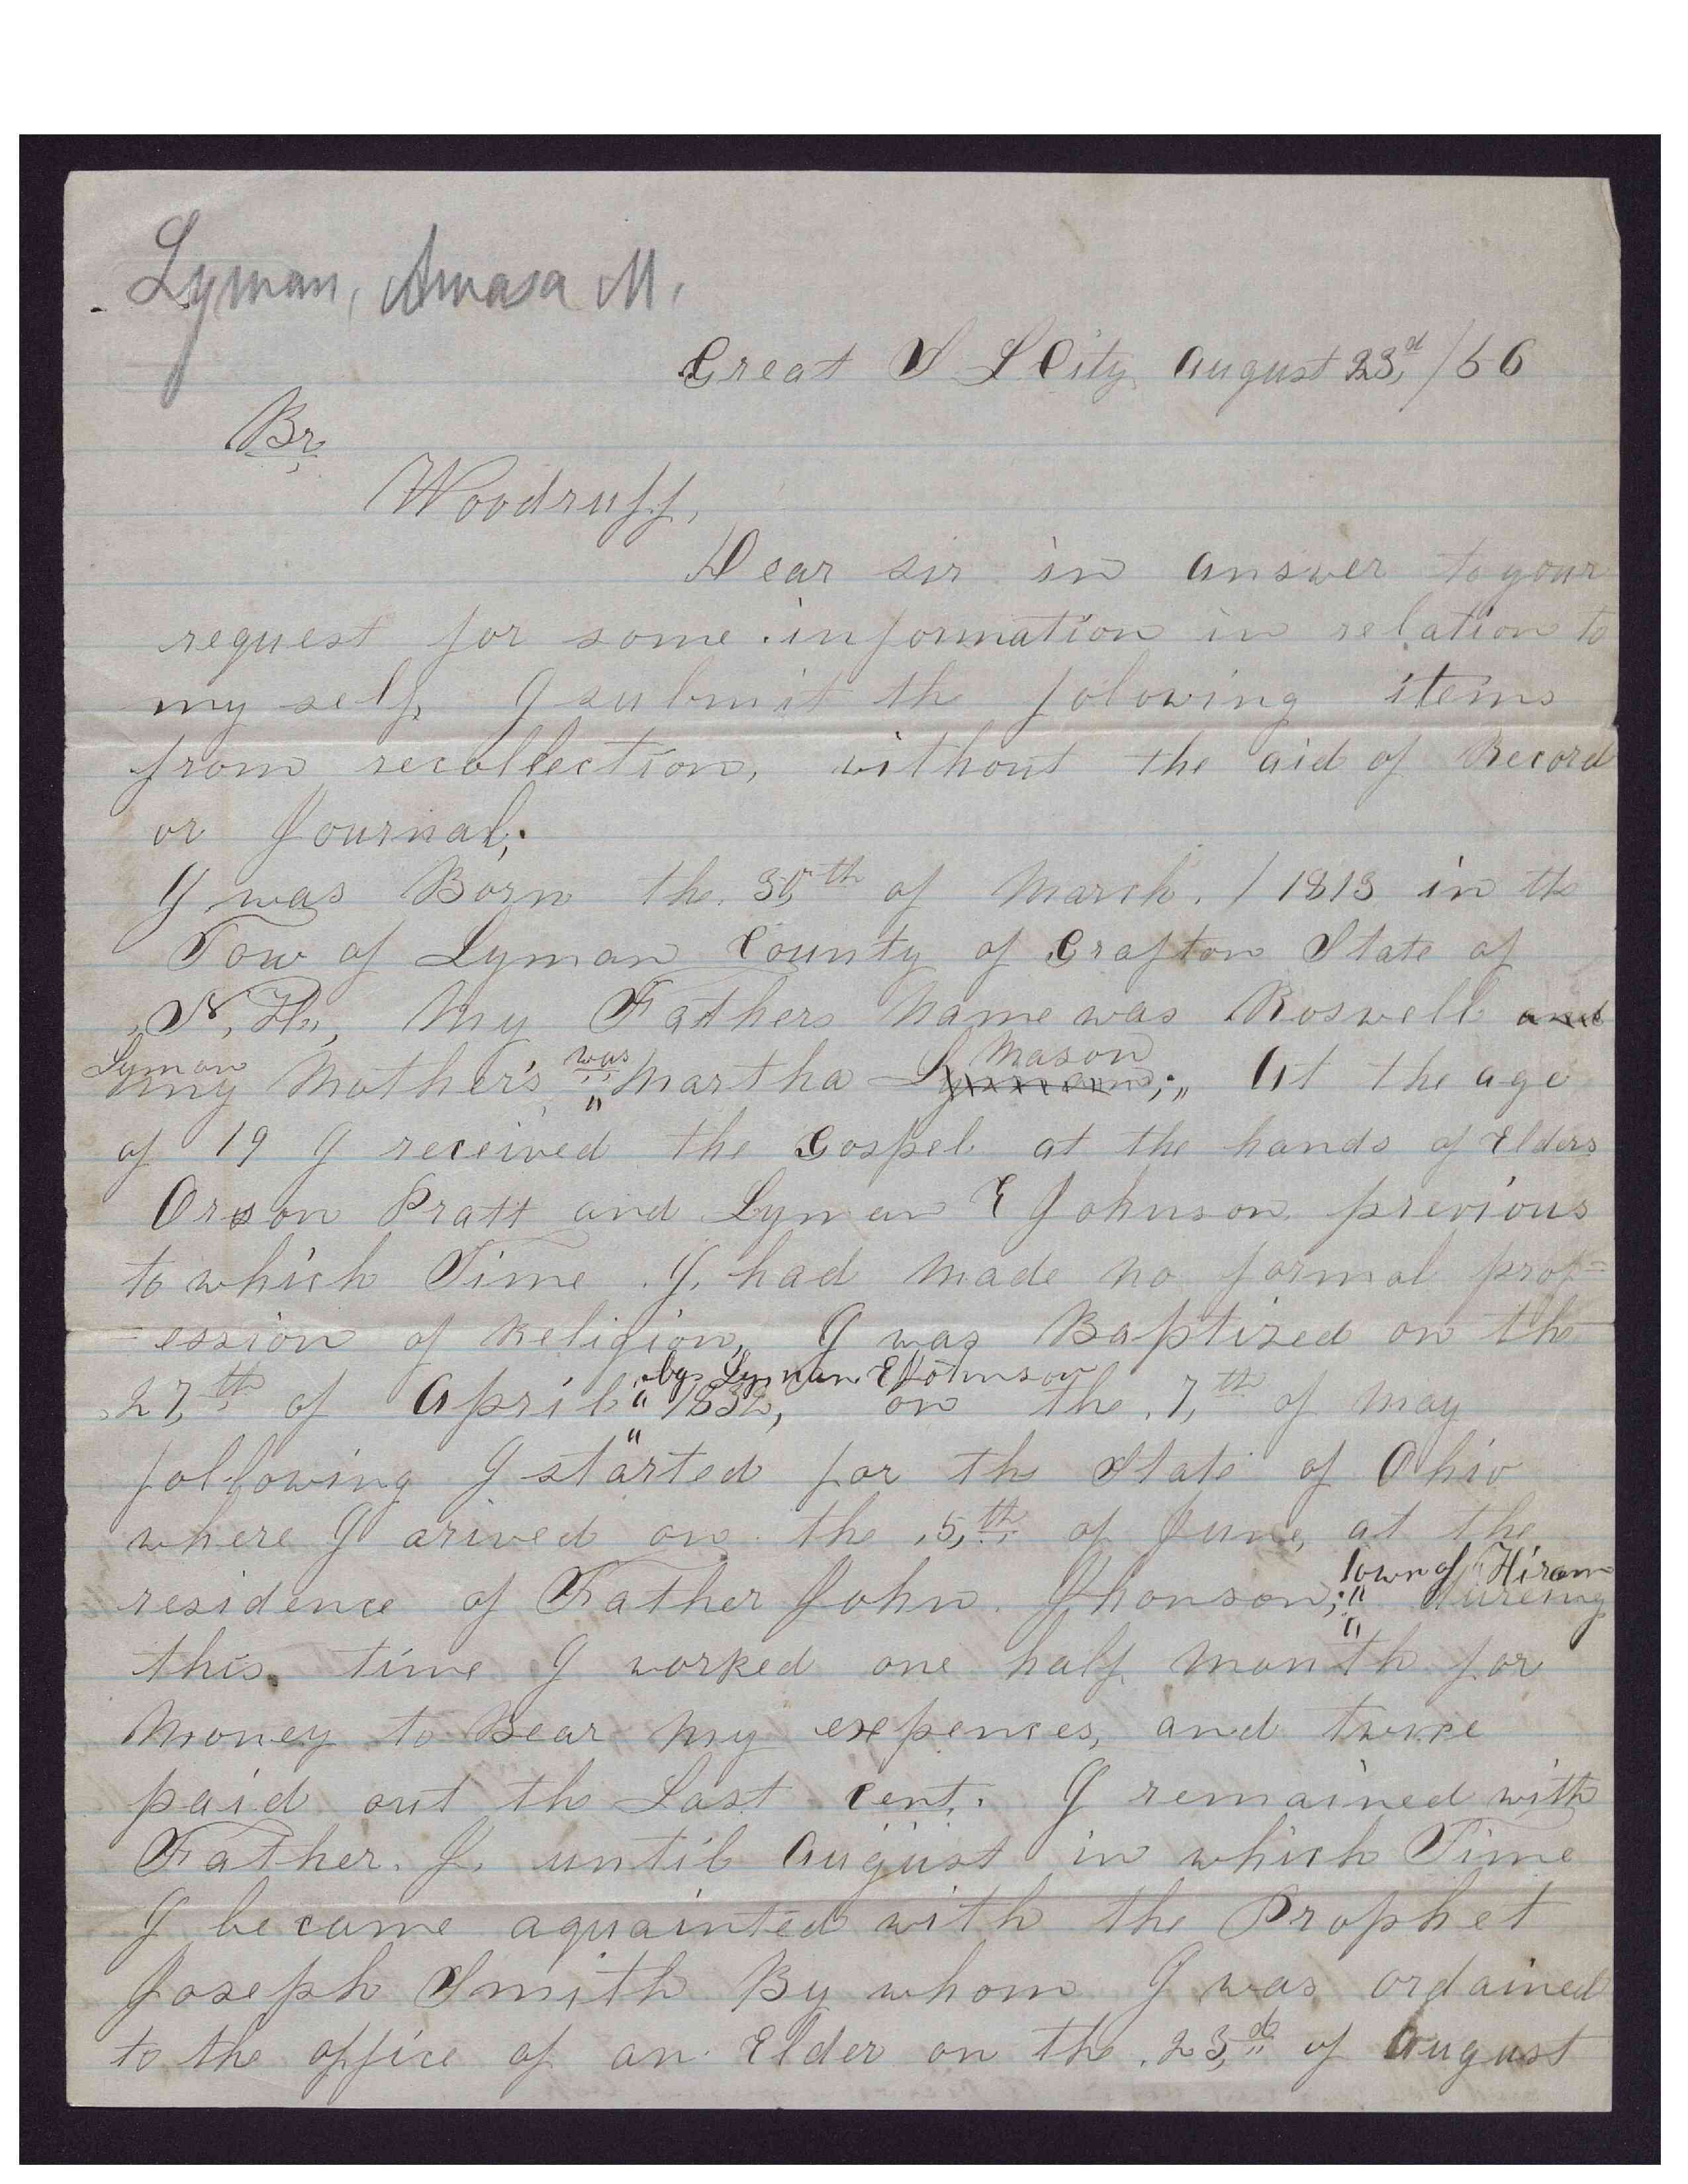 Lyman, Amasa M.
Great S L City August 23,d /56
Br,
Woodruff,
Dear sir in answer to your
request for some information in relation to
my self, I submit th folowing items
from recollection, without the aid of Record
or Journal;
I was Born the 30,th of March. / 1813 in th
Tow of Lyman County of Grafton State of
N, H, My Fathers Name was Roswell and
Lyman was Mason
my Mother's, " Martha Lyman;" At the age
of 19 I received the Gospel at the hands of Elders
Orson Pratt and Lyman E Johnson previous
to which Time I, had made no formal prof=
=ession of Religion, I was Baptised on th
by Lyman E Johnson
27,th of April " 1832, on the 7,th of May
following I started for th State of Ohio
where I arived on the 5,th of June, at the
town of Hiram
residence of Father John Jhonson;" dureing
this time I worked one half month for
Money to Bear my expences, and twice
paid out th Last cent. I remained with
Father. J. until August in which Time
I became aquainted with the Prophet
Joseph Smith By whom I was ordained
to the office of an Elder on th 23,d of August